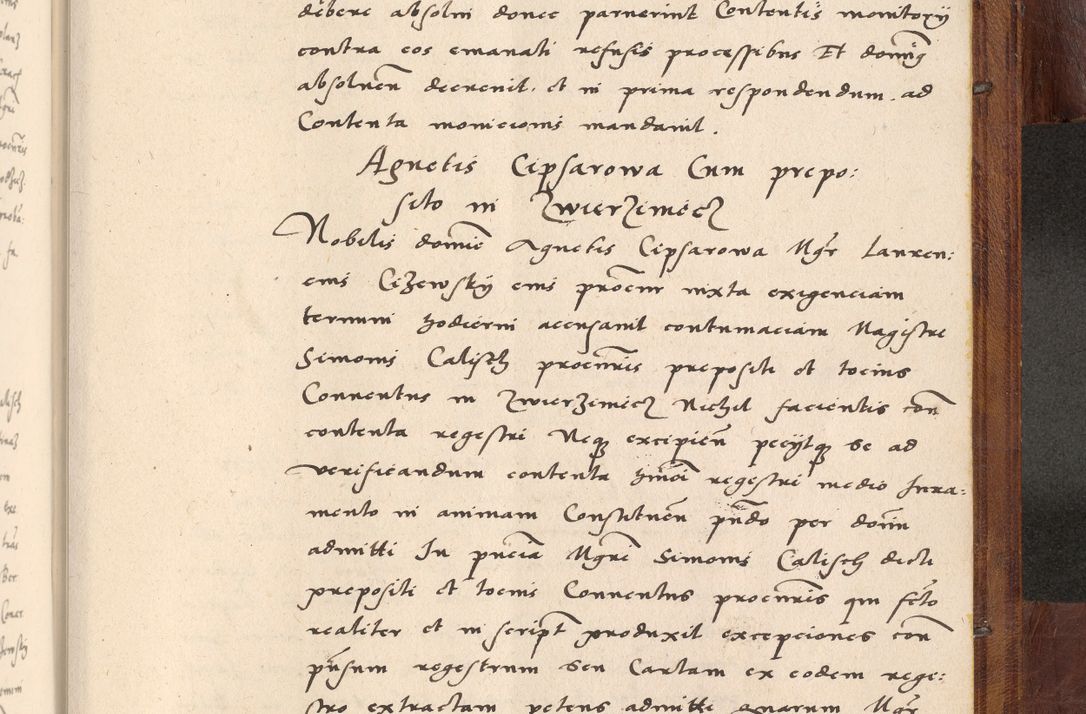 debere absolvi donec parnerint Contentis monitorÿ
contra eos emanati refusis processibus Et domīg
absolueñ decrevit. et in prima respondendum. ad
Contenta monicionis mandavit.
Agnetis Cipsarowa Cum prepo:
sito in Zwierzeniecz
Nobilis domīe Agnetis Cipsarowa Mgr̄ Lauren:
cius Cizewskÿ eius procūr iuxta exigenciam
termini hodierni acusavit contumaciam Magistri
Simonis Calisch procūris prepositi et tocius
Conventus in Zwierzeniecz Nichil facientis con̄
contenta regestri Neqȝ excipieñ peciitqȝ se ad
verificandum contenta hm̄oi regestri medio Iura:
mento in animam Constitueñ p̄ndo per domīm
admitti In pn̄cia Mgr̄i Simonis Calisch dicti
prepositi et tocius Conventus procūris qui fc̄to
realiter et in script̄ produxit excepciones con̄
pn̄sum regestrum seu Cartam ex eodem rege:
stro extractam petens admitti quarum Mgr̄